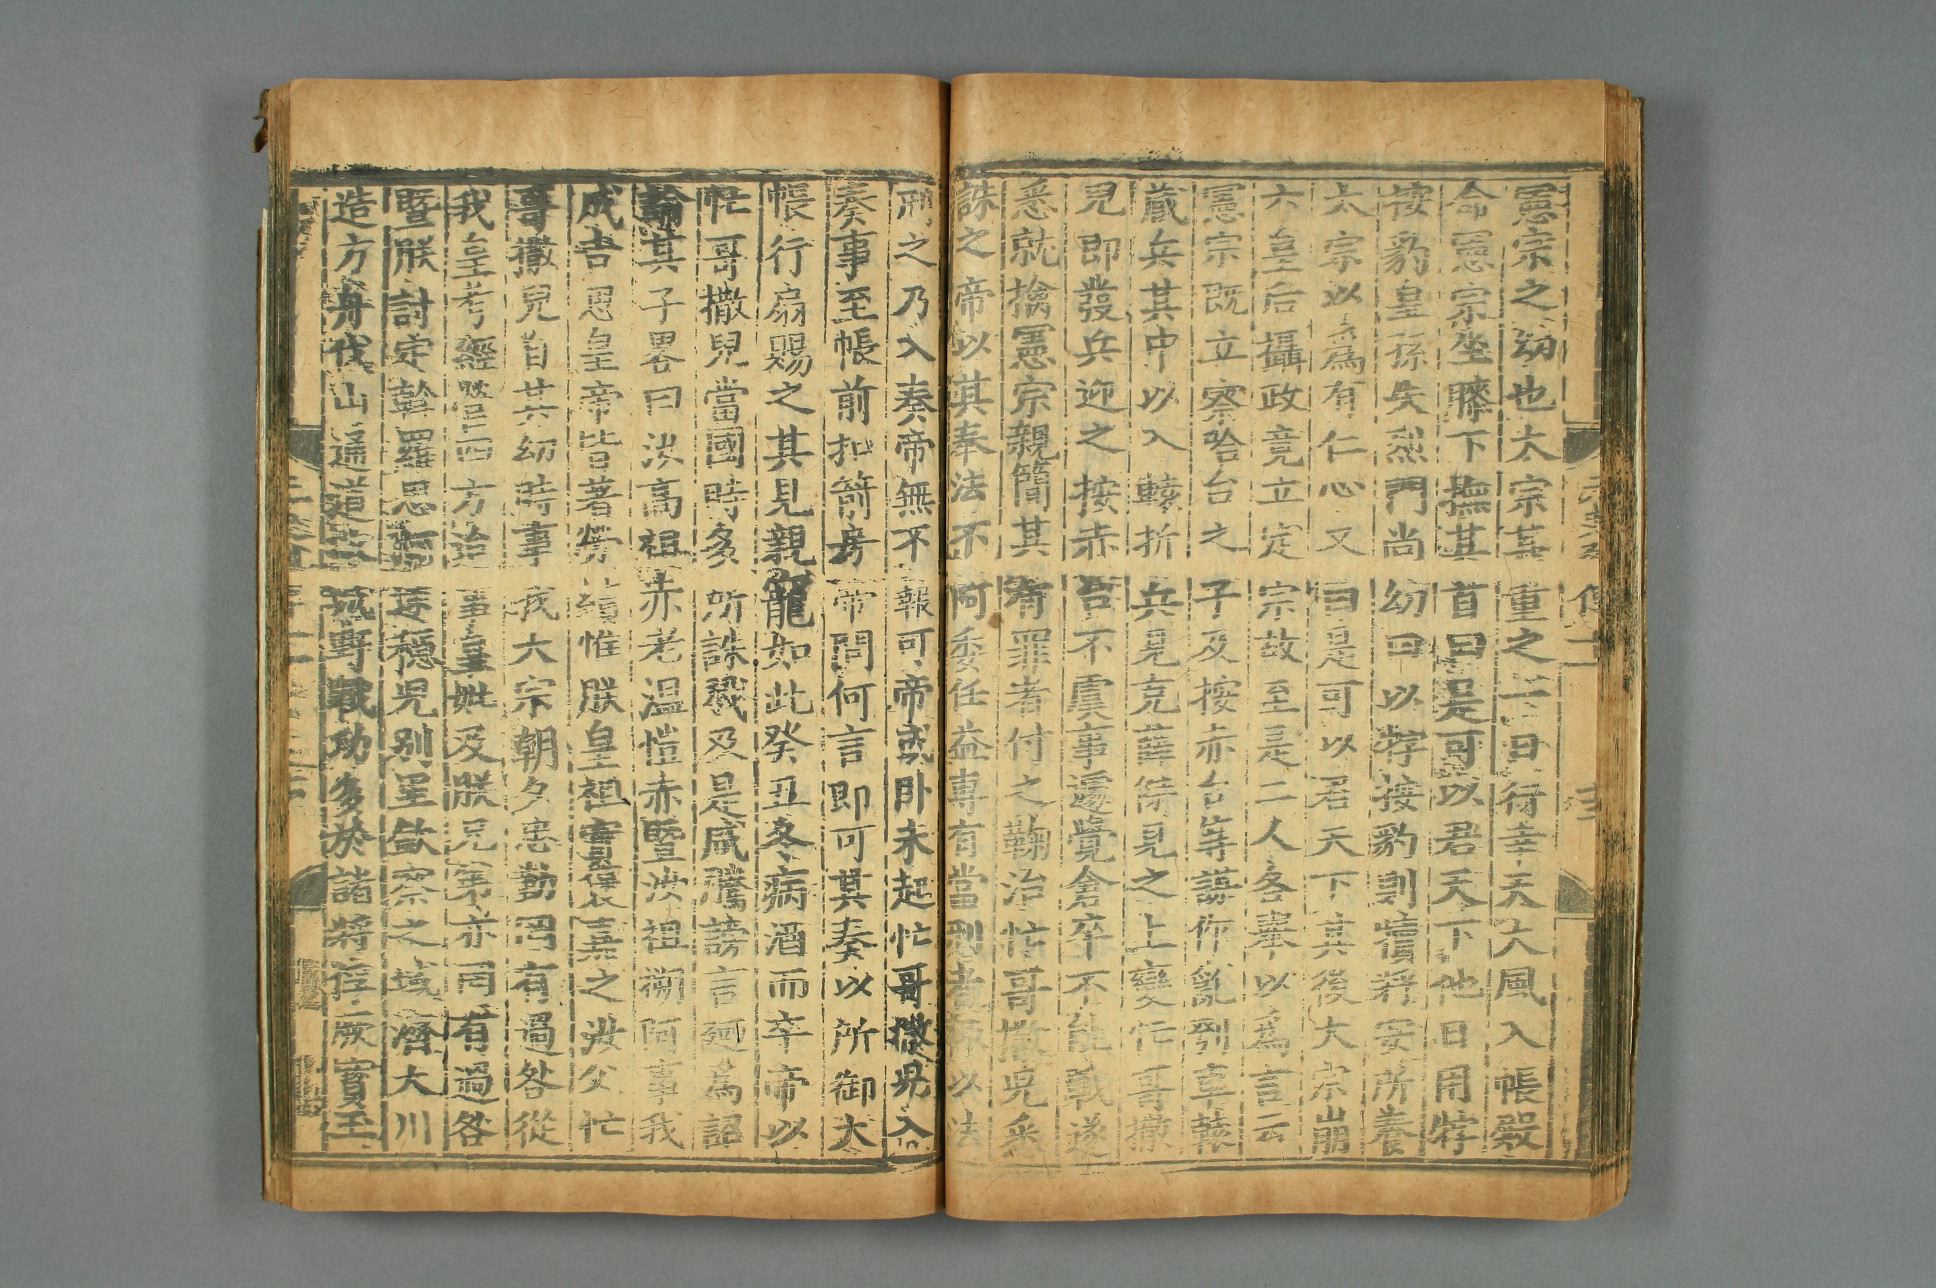 憲宗之幼也太宗甚重之一日行幸天大風入帳殿
命憲宗坐膝下撫其首曰是可以君天下他日用牸
按豹皇孫失烈門尚幼曰以牸按豹則犢將安所養
太宗以爲有仁心又曰是可以君天下其後太宗崩
六皇后攝政竟立定宗故至是二人各舉以爲言云
憲宗既立察哈台之子及按赤台等謀作亂刳車轅
藏兵其中以入轅折兵見克薛傑見之上變忙哥撒
兒即發兵迎之按赤台不虞事遽覺倉卒不能戰遂
悉就擒憲宗親簡其有罪者付之鞫治忙哥撒兒悉
誅之帝以其奉法不阿委任益專有當刑者輒以法
刑之乃入奏帝無不報可帝或臥未起忙哥撒兒入
奏事至帳前扣箭房帝問何言即可其奏以所御大
帳行扇賜之其見親寵如此癸丑冬病酒而卒帝以
忙哥撒兒當國時多所誅戮及是咸騰謗言廼爲詔
諭其子畧曰汝高祖赤老溫愷赤暨汝祖搠阿事我
成吉思皇帝皆著勞績惟朕皇祖實褒嘉之汝父忙
哥撒兒自其幼時事我太宗朝夕忠勤罔有過咎從
我皇考經營四方治事皇妣及朕兄弟亦罔有過咎
暨朕討定斡羅思 穩兒別里欽察之域濟大川
造方舟伐山通道攻城野戰功多於諸將俘厥寶玉